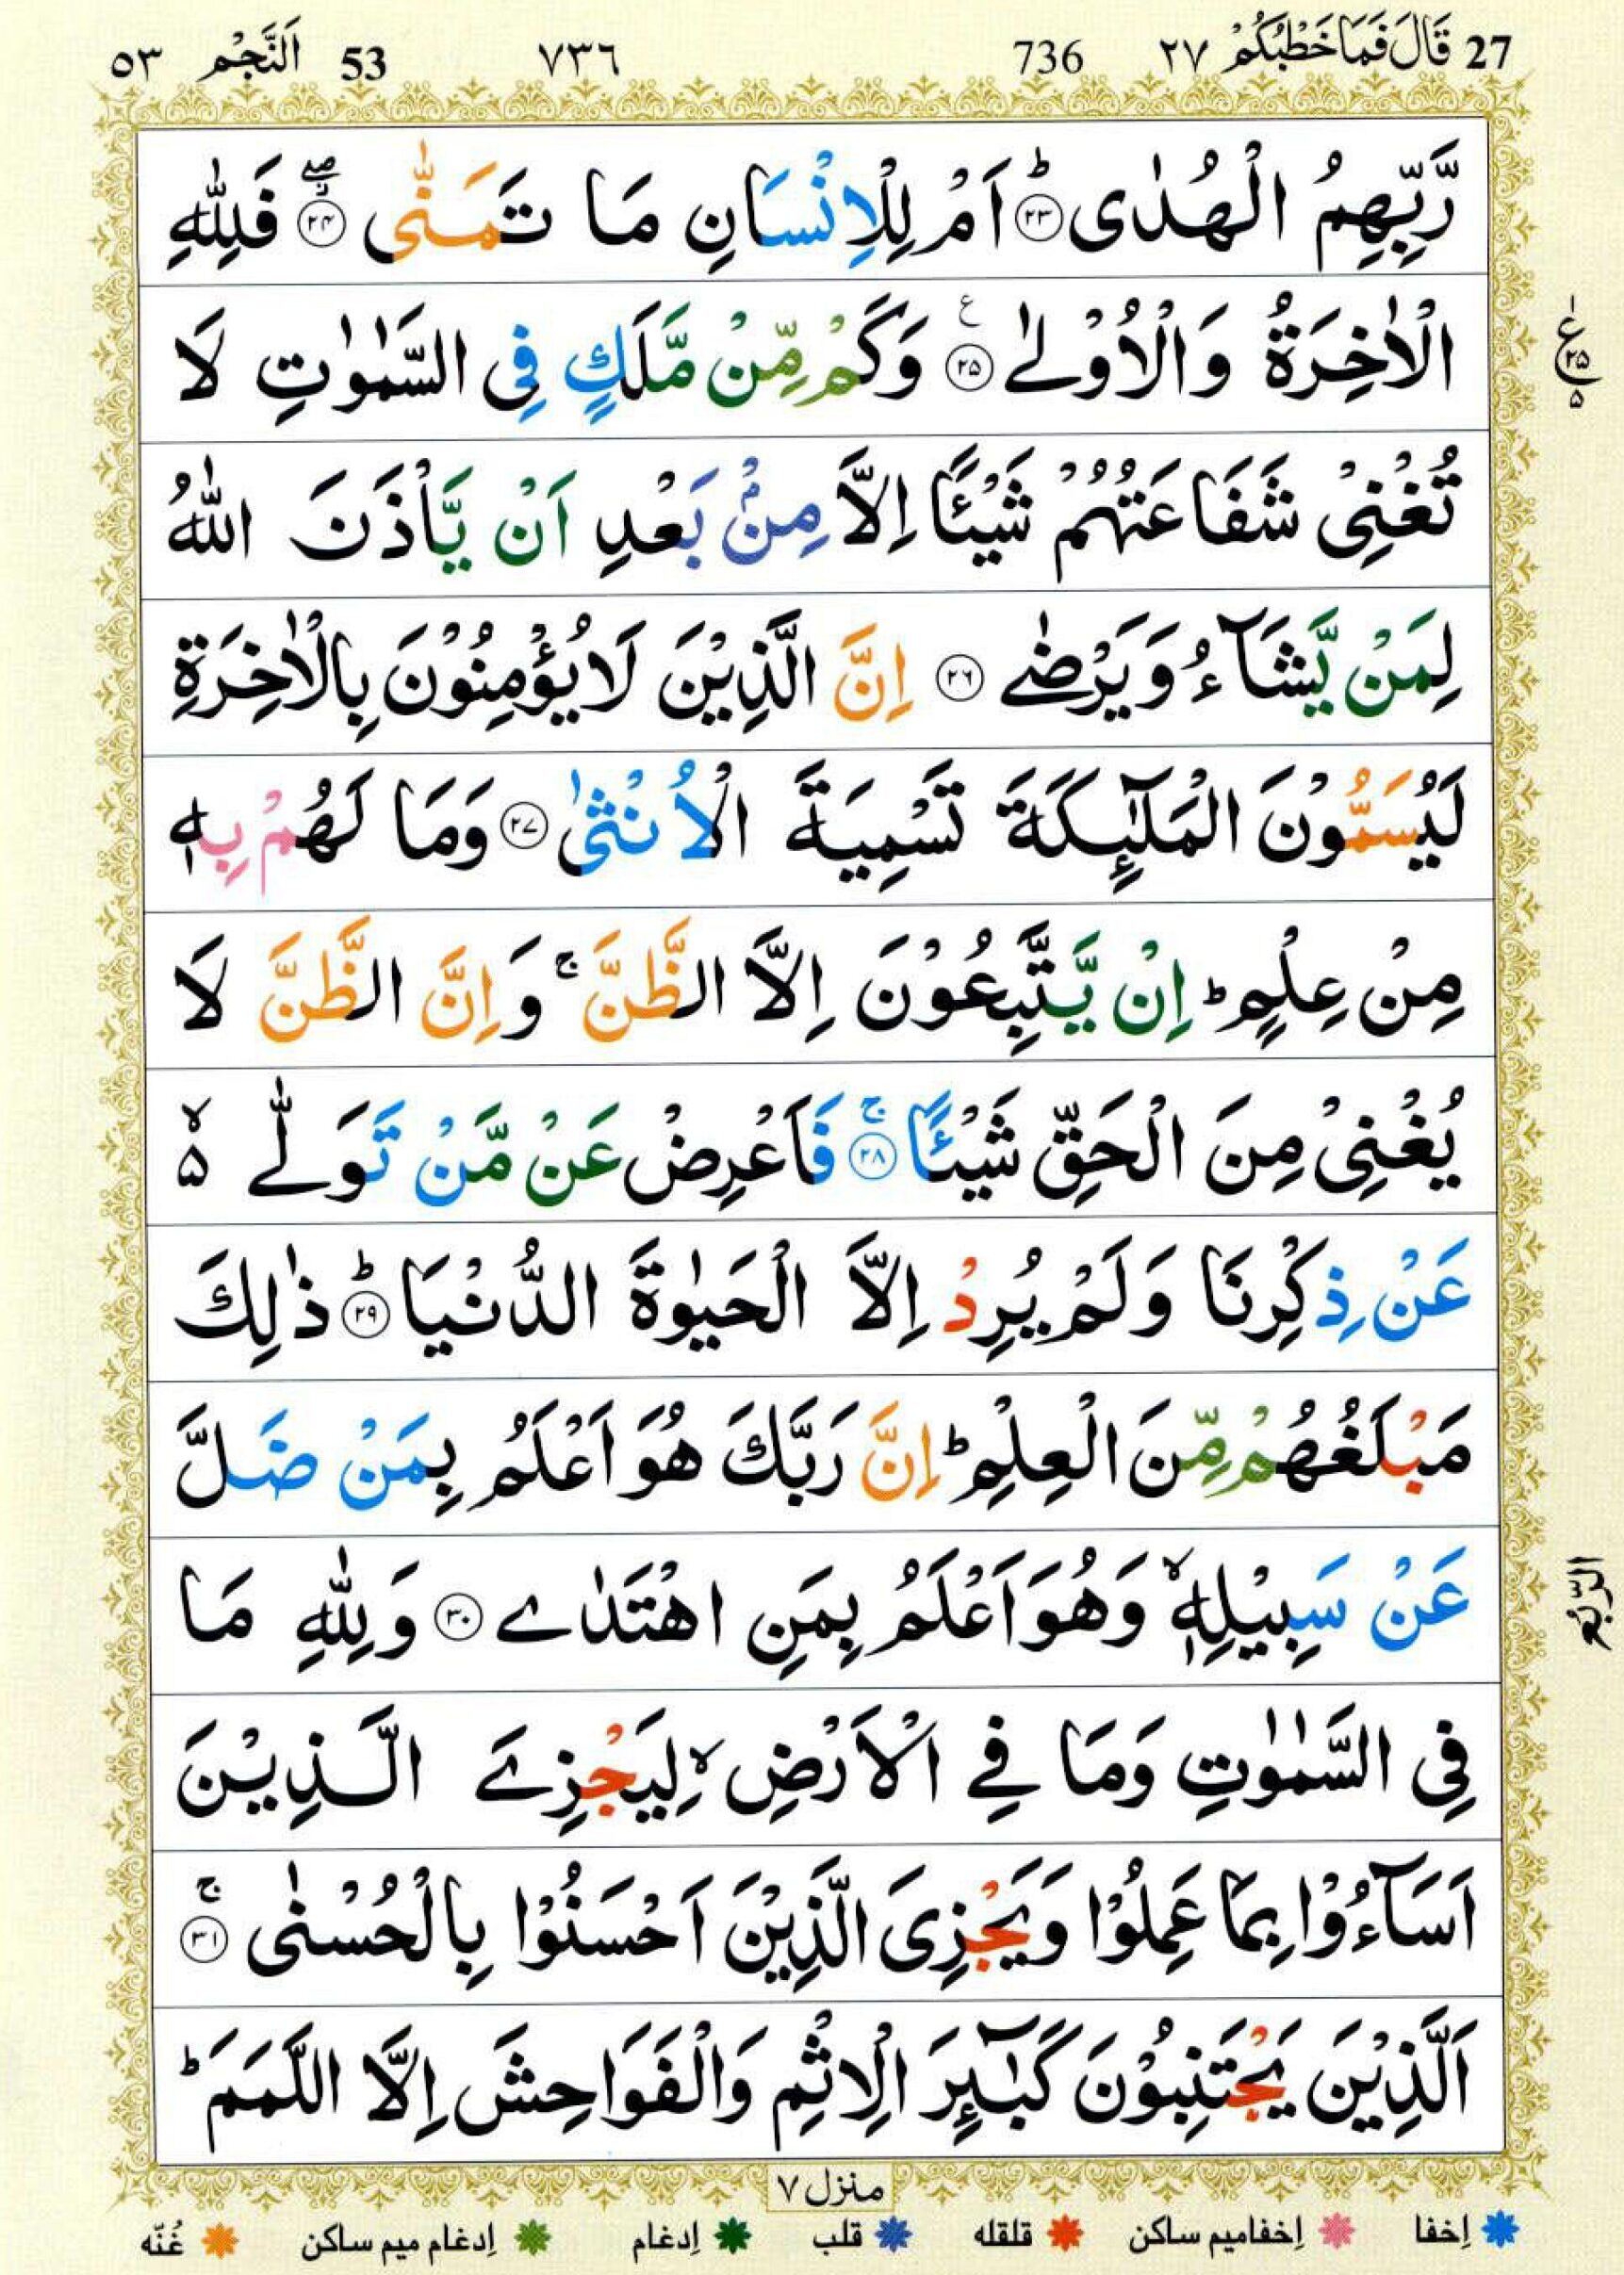 27 قَالَ فَمَا خَطْبُكُمْ ٢٧ 736 ٧٣٦ 53 اَلنَّجْم ٥٣
رَّبِّهِمُ الْهُدٰى ؕ ﴿۲۳﴾ اَمْ لِلْاِنْسَانِ مَا تَمَنّٰى ﴿۲۴﴾ ۖ ۫ فَلِلّٰهِ
الْاٰخِرَةُ وَالْاُوْلٰے ﴿۲۵﴾ ع وَكَمْ مِّنْ مَّلَكٍ فِى السَّمٰوٰتِ لَا
ع ۲۵ ۵
تُغْنِىْ شَفَاعَتُهُمْ شَيْـًٔا اِلَّا مِنْۢ بَعْدِ اَنْ يَّاْذَنَ اللّٰهُ
لِمَنْ يَّشَآءُ وَيَرْضٰے ﴿۲۶﴾ اِنَّ الَّذِيْنَ لَا يُؤْمِنُوْنَ بِالْاٰخِرَةِ
لَيُسَمُّوْنَ الْمَلٰٓئِكَةَ تَسْمِيَةَ الْاُنْثٰى ﴿۲۷﴾ وَمَا لَهُمْ بِهٖ
مِنْ عِلْمٍ ؕ اِنْ يَّتَّبِعُوْنَ اِلَّا الظَّنَّ ۚ وَاِنَّ الظَّنَّ لَا
يُغْنِىْ مِنَ الْحَقِّ شَيْـًٔا ﴿۲۸﴾ ۚ فَاَعْرِضْ عَنْ مَّنْ تَوَلّٰے ۵ۙ
عَنْ ذِكْرِنَا وَلَمْ يُرِدْ اِلَّا الْحَيٰوةَ الدُّنْيَا ؕ ﴿۲۹﴾ ذٰلِكَ
مَبْلَغُهُمْ مِّنَ الْعِلْمِ ؕ اِنَّ رَبَّكَ هُوَ اَعْلَمُ بِمَنْ ضَلَّ
عَنْ سَبِيْلِهٖ ۙ وَهُوَ اَعْلَمُ بِمَنِ اهْتَدٰے ﴿۳۰﴾ وَلِلّٰهِ مَا
الرّبع
فِى السَّمٰوٰتِ وَمَا فِے الْاَرْضِ ۙ لِيَجْزِےَ الَّذِيْنَ
اَسَآءُوْا بِمَا عَمِلُوْا وَيَجْزِىَ الَّذِيْنَ اَحْسَنُوْا بِالْحُسْنٰى ﴿۳۱﴾ ۚ
اَلَّذِيْنَ يَجْتَنِبُوْنَ كَبٰٓئِرَ الْاِثْمِ وَالْفَوَاحِشَ اِلَّا اللَّمَمَ ؕ
منزل ٧
إخفا إخفاميم ساكن قلقله قلب إدغام إدغام ميم ساكن غُنّه